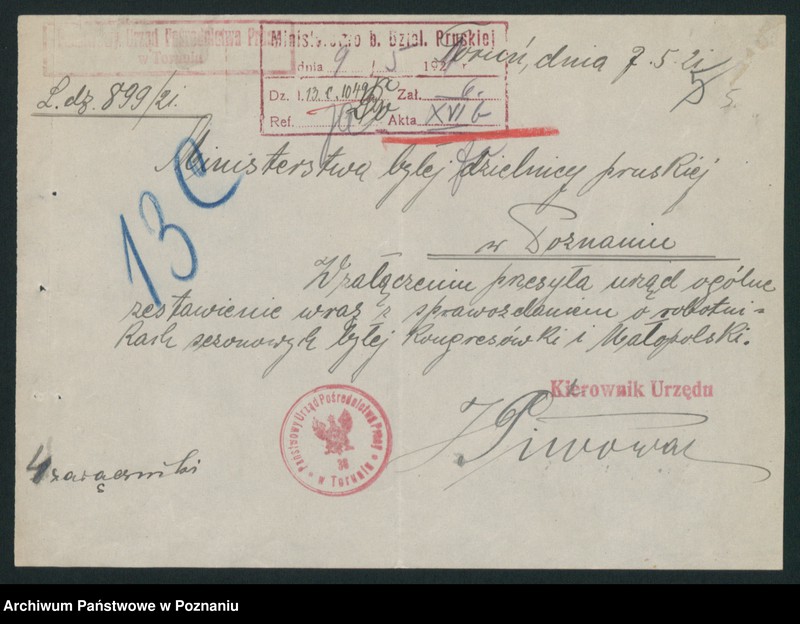 Państwowy Urząd Pośrednictwa Pracy
w Toruniu
L.dz. 899/21.
Ministerstwo b. Dziel. Pruskiej
dnia 9 5 192 r
Dz. I. 13. C. 1049 Zał. 6.
Ref. Akta XVI b
Toruń, dnia 7. 5. 21
13 C
Ministerstwa byłej dzielnicy pruskiej
w Poznaniu
W załączeniu przesyła urząd ogólne
zestawienie wraz z sprawozdaniem o robotni-
kach sezonowych byłej Kongresówki i Małopolski.
Kierownik Urzędu
Piwowar
Państwowy Urząd Pośrednictwa Pracy
w Toruniu
4 załączniki
Archiwum Państwowe w Poznaniu